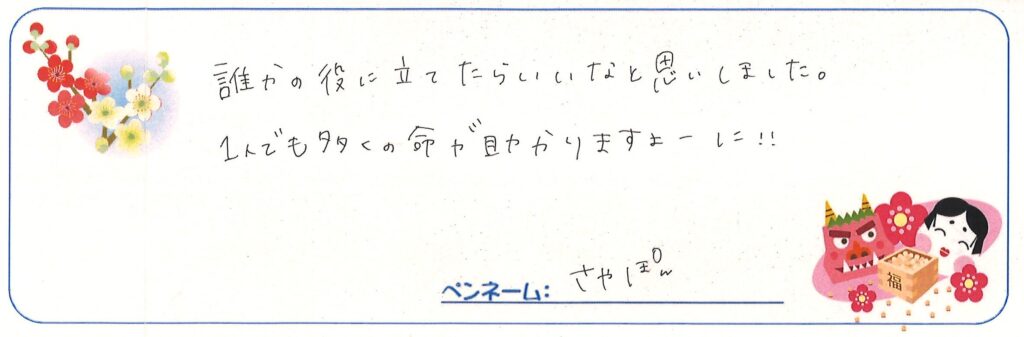 誰かの役に立てたらいいなと思いしました。
1人でも多くの命が助かりますよーに!!
ペンネーム: さやぽん
福